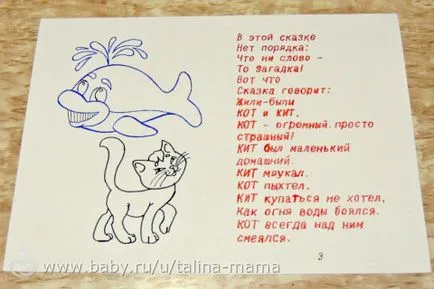 В этой сказке
Нет порядка:
Что ни слово –
То загадка!
Вот что
Сказка говорит:
Жили-были
КОТ и КИТ.
КОТ – огромный, просто
страшный!
КИТ был маленький
домашний.
КИТ мяукал.
КОТ пыхтел.
КИТ купаться не хотел,
Как огня воды боялся.
КОТ всегда над ним
смеялся.
3
www.baby.ru/u/talina-mama